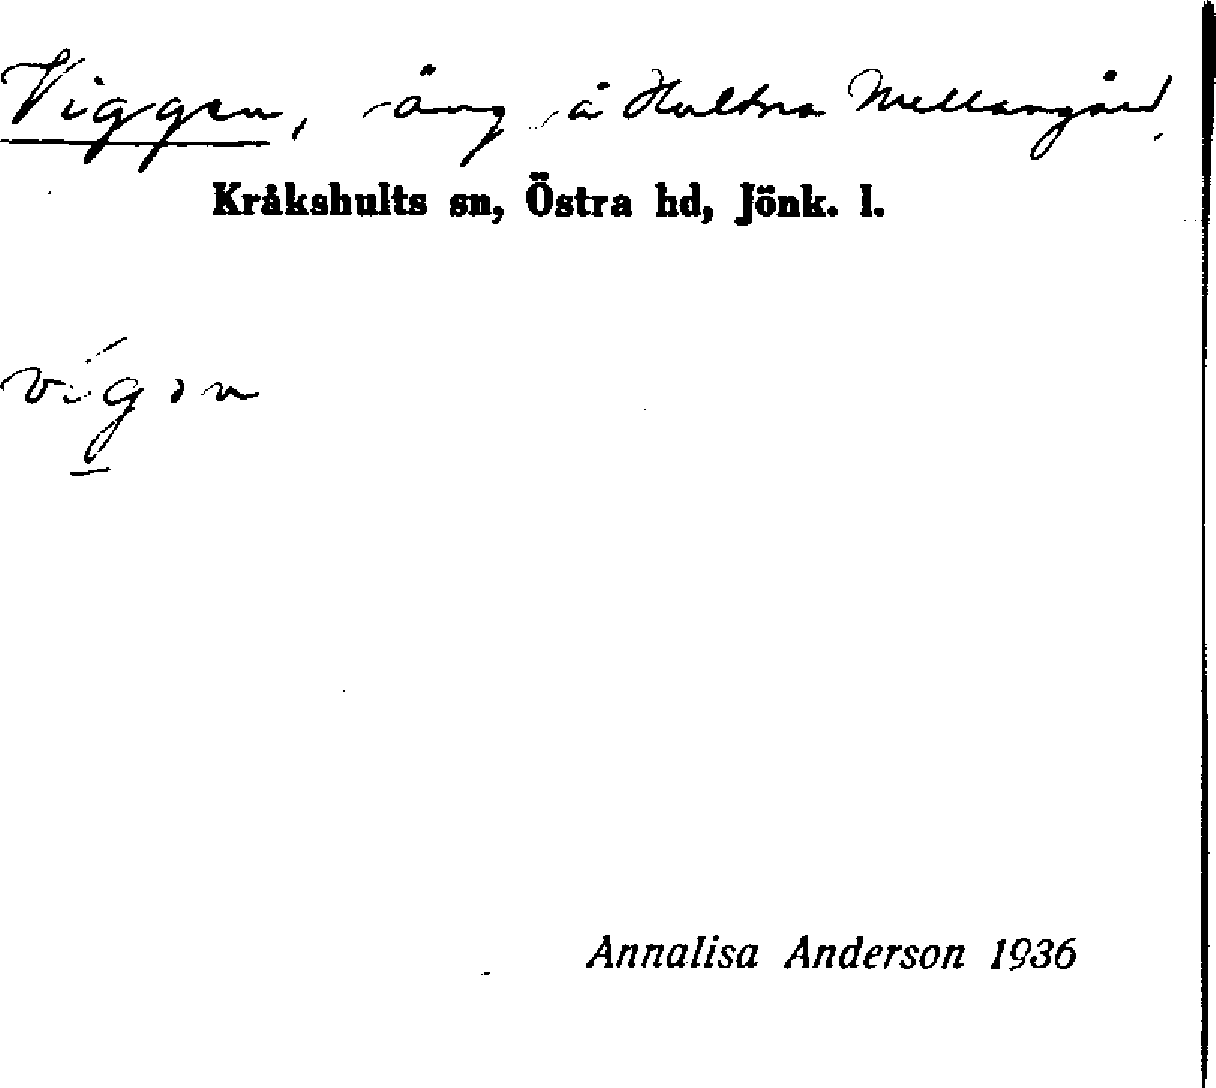 Viggen, äng å Hultna Mellangård.
Kråkshults sn, Östra hd, Jönk. l.
vígən
Annalisa Anderson 1936